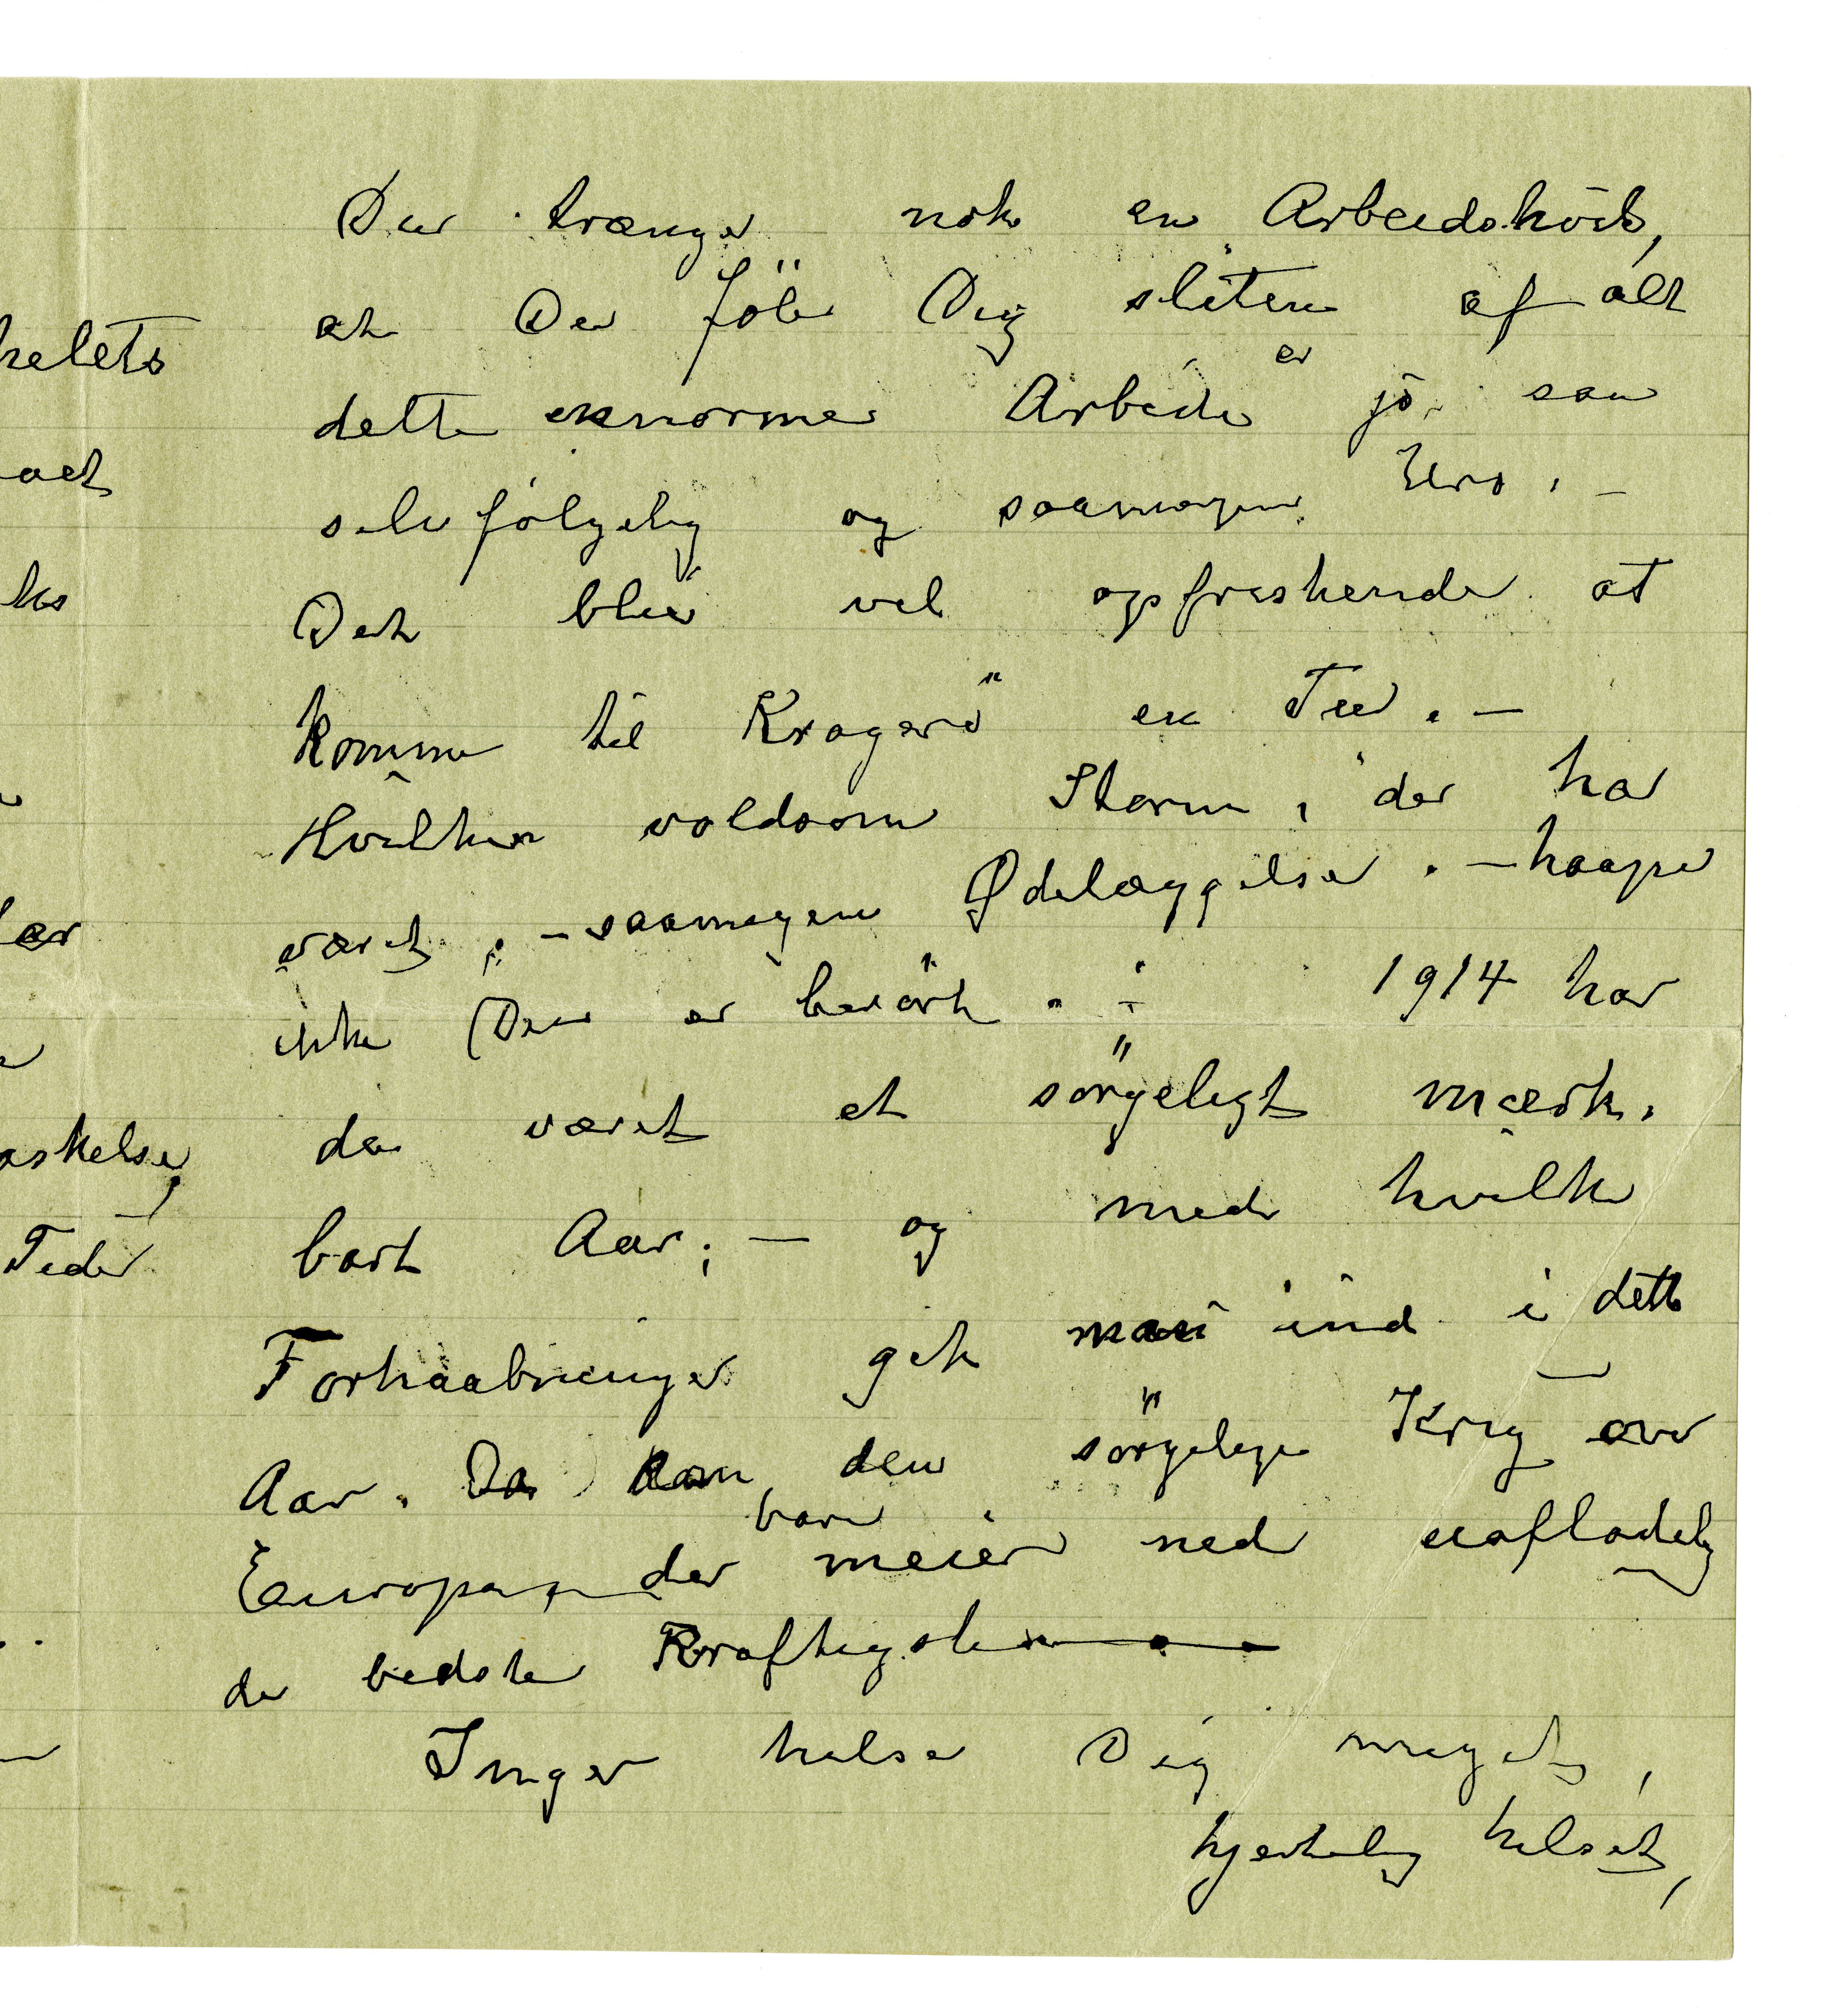 helets
aet
ks
er
askelse,
Tider
Du trænger nok en Arbeidshvile,
at Du föler Dig sliten af alt
dette enorme Arbeide er jo saa
selvfölgelig og saamegen Uro. –
Det blir vel opfriskende at
komme til Kragerö en Tur. –
Hvilken voldsom Storm, der har
været; – saamegen Ødelæggelser. – haaper
ikke Du er berört. – 1914 har
da været et sörgeligt mærk-
bart Aar; – og med hvilke
Forhaabninger gik man ind i dette
Aar. Da kom den sörgelige Krig over
Europa, der bare meier ned uafladelig
de bedste Kraftigste
Inger hilser Dig meget,
hjertelig hilset,